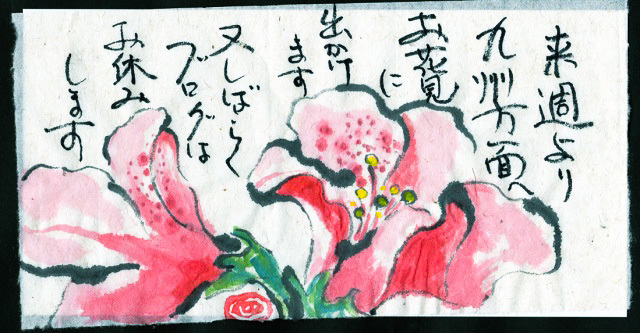 来週より
九州方面へ
お花見に
出かけます
又しばらく
ブログは
お休み
します